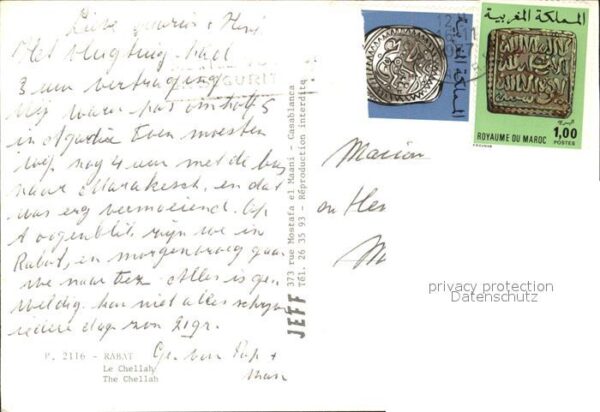 Lieve Marion + Henk
Het vliegtuig had
3 uur vertraging
Wij waren pas om half 5
in Agadir Toen moesten
we nog 4 uur met de bus
naar Marrakesch, en dat
was erg vermoeiend. Op
t oogenblik zijn we in
Rabat, en morgenvroeg gaan
we naar Fez. Alles is ge-
weldig. kan niet alles schrijven
iedere dag zon 21 gr.
P. 2116 - RABAT
Le Chellah
The Chellah
Gr. van Pap +
Mam
JEFF 373 rue Mostafa el Maani - Casablanca
Tél. 26 35 93 - Réproduction interdite
المملكة المغربية
المملكة المغربية
1,00
ROYAUME DU MAROC POSTES
Marion
en Hen
privacy protection
Datenschutz